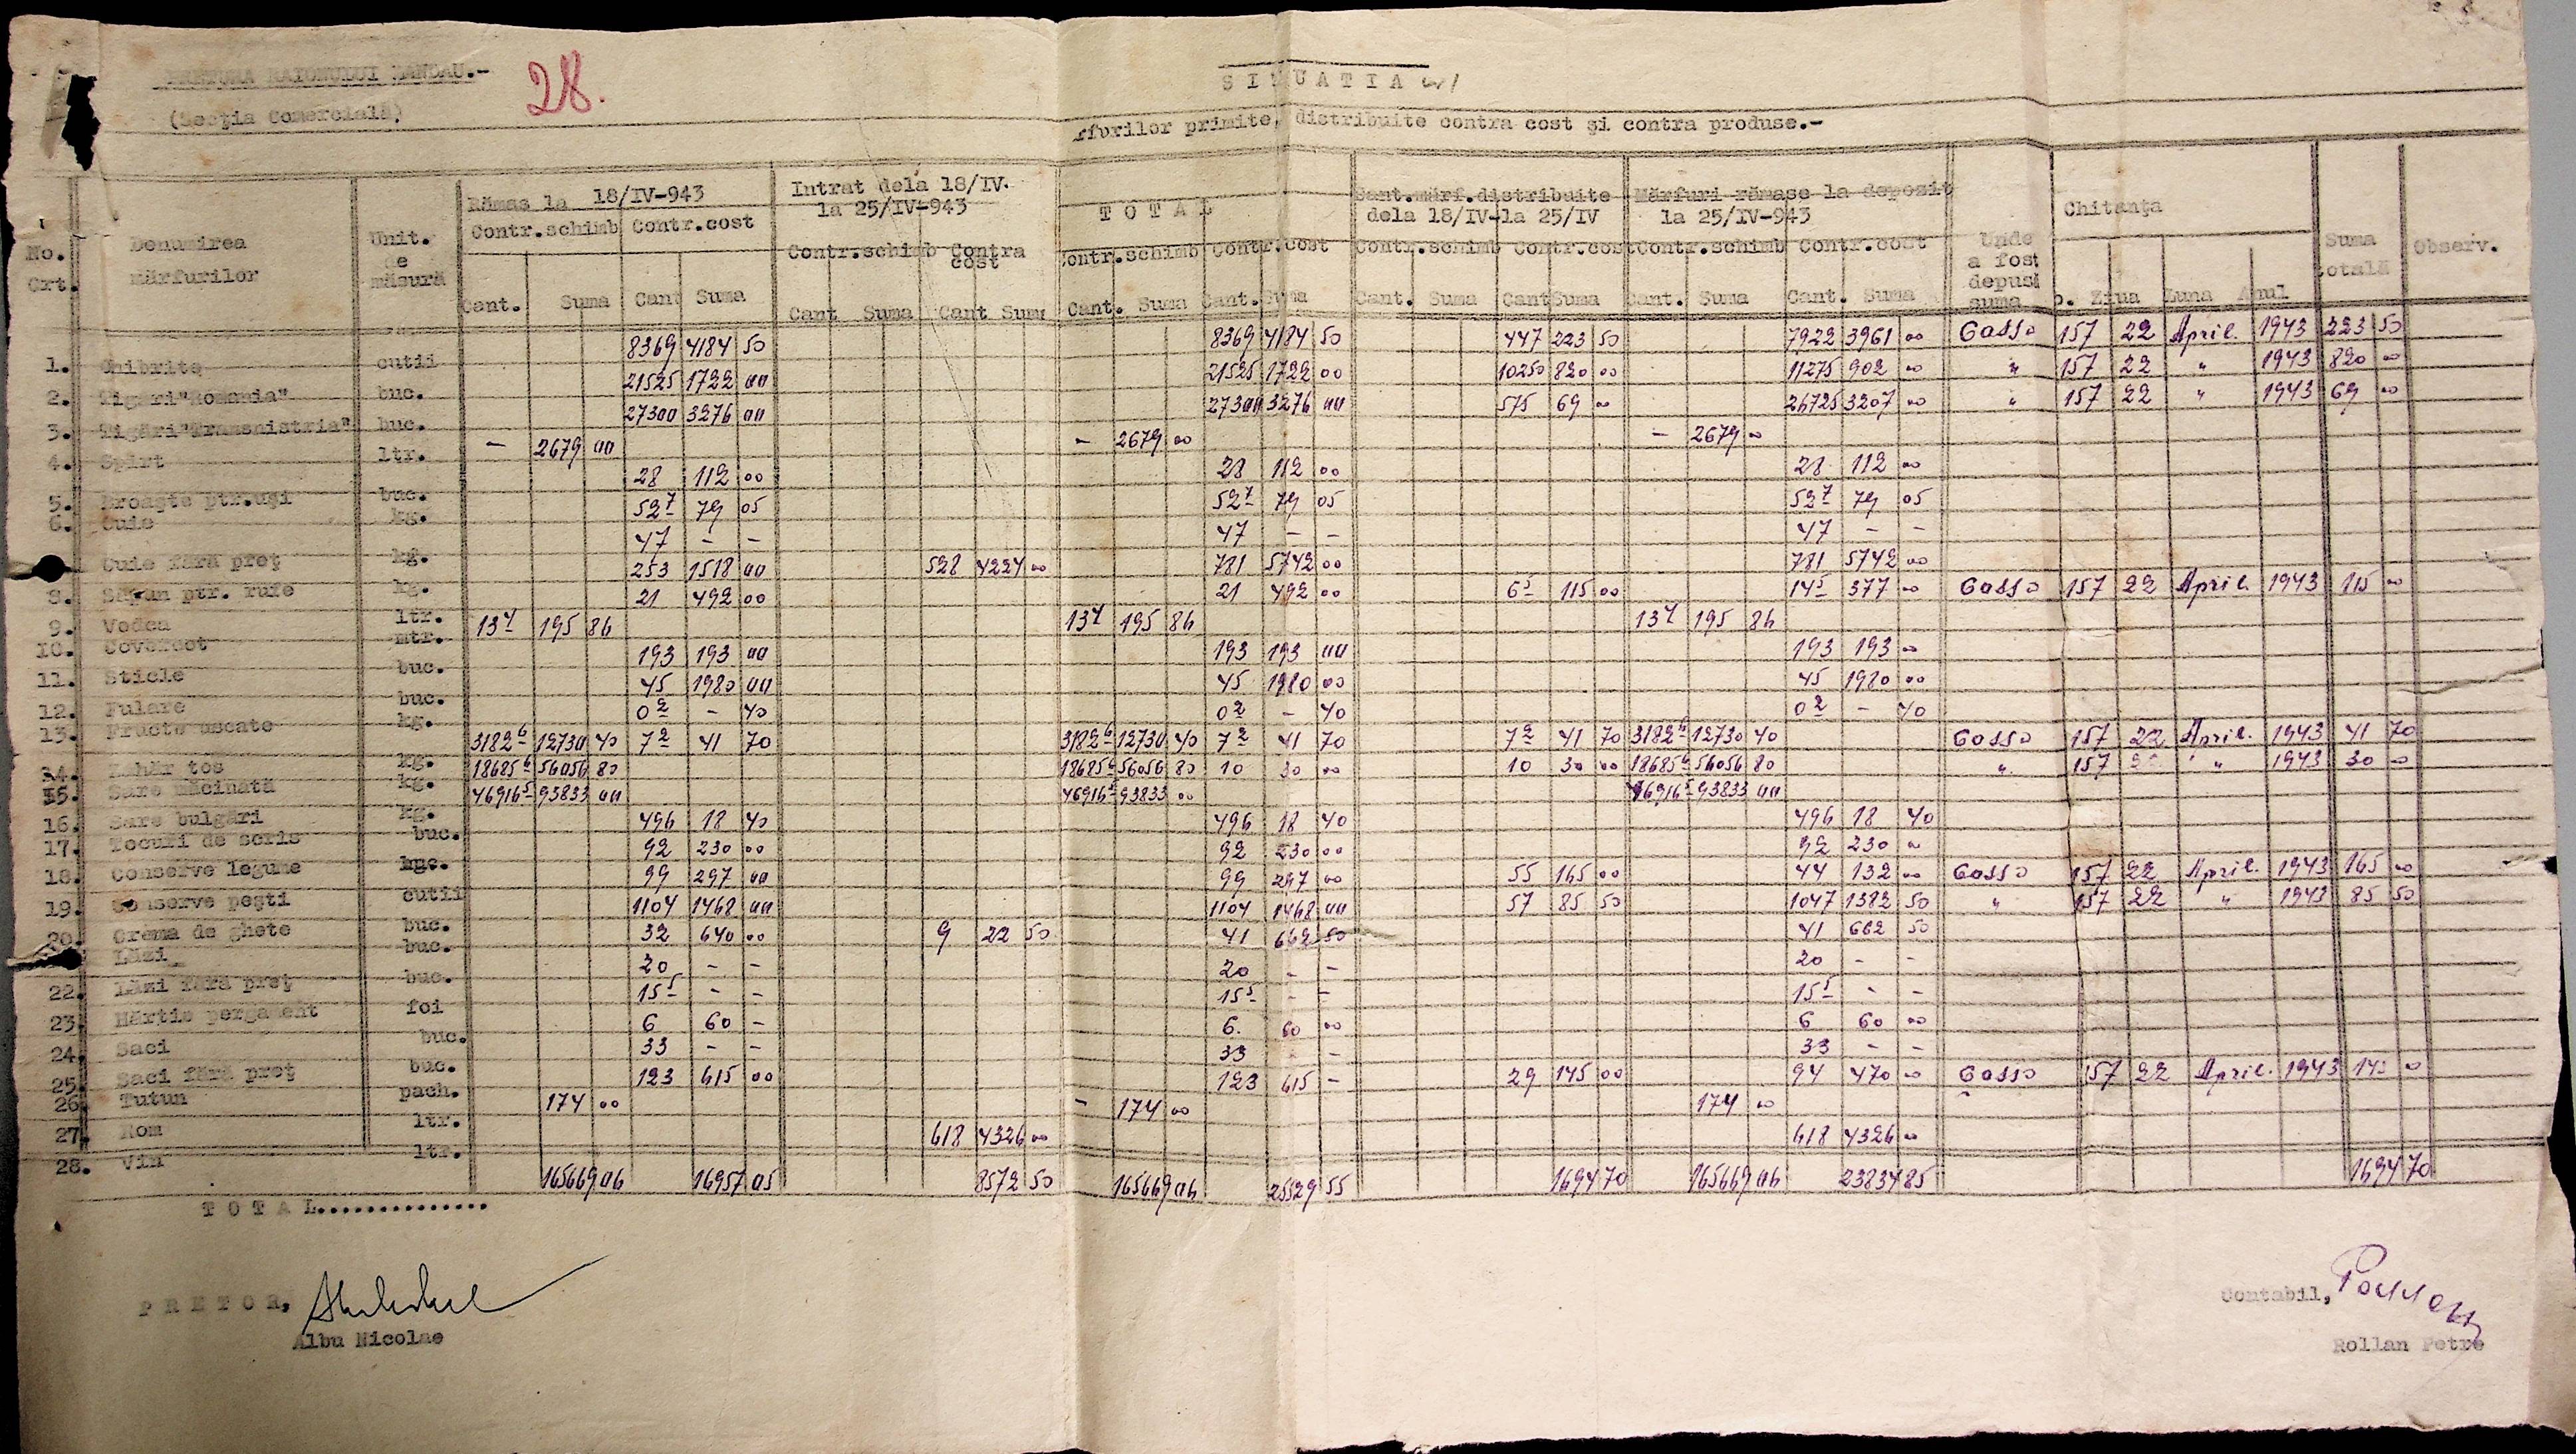 PRETURA RAIONULUI LANDAU.-
28.
(Secţia Comercială)
SITUATIA
distribuite contra cost şi contra produse.-
No. Crt. Denumirea mărfurilor Unit. de măsură Rămas la 18/IV-943 Intrat dela 18/IV. la 25/IV-943 TOTAL Cant.mărf.distribuite dela 18/IV-la 25/IV Mărfuri rămase la depozit la 25/IV-943 Unde a fost depusă suma Chitanţa Suma totală Observ.
Contr.schimb Contr.cost Contr.schimb Contra cost Contr.schimb Contr.cost Contr.schimb Contr.cost Contr.schimb Contr.cost
Cant. Suma Cant Suma Cant Suma Cant Suma Cant. Suma Cant. Suma Cant. Suma Cant Suma Cant. Suma Cant. Suma Ziua Luna Anul
1. Chibrite cutii 8369 4184 50 8369 4184 50 447 223 50 7922 3961 00 Cassa 157 22 April. 1943 223 50
2. Ţigări"Romania" buc. 21525 1722 00 21525 1722 00 10250 820 00 11275 902 00 " 157 22 " 1943 820 00
3. Ţigări"Transnistria" buc. 27300 3276 00 27300 3276 00 575 69 00 26725 3207 00 " 157 22 " 1943 69 00
4. Spirt ltr. - 2679 00 - 2679 00 - 2679 00
5. Broaşte ptr.uşi buc. 28 112 00 28 112 00 28 112 00
6. Cuie kg. 52 7 79 05 52 7 79 05 52 7 79 05
Cuie fără preţ kg. 47 - - 47 - - 47 - -
8. Săpun ptr. rufe kg. 253 1518 00 528 4224 00 781 5742 00 781 5742 00
9. Vodca ltr. 21 492 00 21 492 00 6 5 115 00 14 5 377 00 Cassa 157 22 April. 1943 115 00
10. Covercot mtr. 13 4 195 86 13 4 195 86 13 4 195 86
11. Sticle buc. 193 193 00 193 193 00 193 193 00
12. Fulare buc. 45 1980 00 45 1980 00 45 1980 00
13. Fructe uscate kg. 0 2 - 40 0 2 - 40 0 2 - 40
14. Zahăr tos kg. 3182 6 12730 40 7 2 41 70 3182 6 12730 40 7 2 41 70 7 2 41 70 3182 6 12730 40 Cassa 157 22 April. 1943 41 70
15. Sare măcinată kg. 18685 6 56056 80 18685 6 56056 80 10 30 00 10 30 00 18685 6 56056 80 " 157 " 1943 30 00
16. Sare bulgări kg. 46916 5 93833 00 46916 5 93833 00 46916 5 93833 00
17. Tocuri de scris buc. 496 18 40 496 18 40 496 18 40
18. Conserve legume buc. 92 230 00 92 230 00 92 230 00
19. Conserve peşti cutii 99 297 00 99 297 00 55 165 00 44 132 00 Cassa 157 22 April. 1943 165 00
20. Crema de ghete buc. 1104 1468 00 1104 1468 00 57 85 50 1047 1382 50 " 157 22 " 1943 85 50
Lăzi buc. 32 640 00 9 22 50 41 662 50 41 662 50
22. Lăzi fără preţ buc. 20 - - 20 - - 20 - -
23. Hârtie pergament foi 15 5 - - 15 5 - - 15 5 - -
24. Saci buc. 6 60 - 6. 60 00 6 60 00
25. Saci fără preţ buc. 33 - - 33 - - 33 - -
26. Tutun pach. 123 615 00 123 615 - 29 145 00 94 470 00 Cassa 157 22 April. 1943 145 00
27. Rom ltr. 174 00 - 174 00 174 00
28. Vin ltr. 618 4326 00 618 4326 00
TOTAL............... 165669 06 16957 05 8572 50 165669 06 25529 55 1694 70 165669 06 23834 85 1694 70
PRETOR,
Albu Nicolae
Contabil,
Rollan Petre